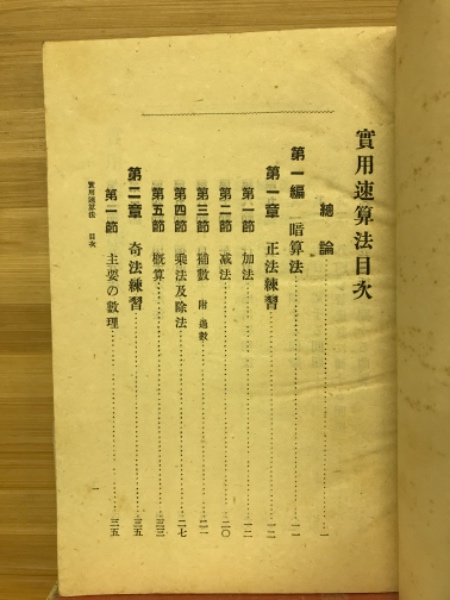 實用速算法目次
總論……一
第一編 暗算法……一一
第一章 正法練習……一二
第一節 加法……一二
第二節 減法……二〇
第三節 補數 附 過數……二一
第四節 乘法及除法……二七
第五節 概算……三三
第二章 奇法練習……三五
第一節 主要の數理……三五
實用速算法 目次
一